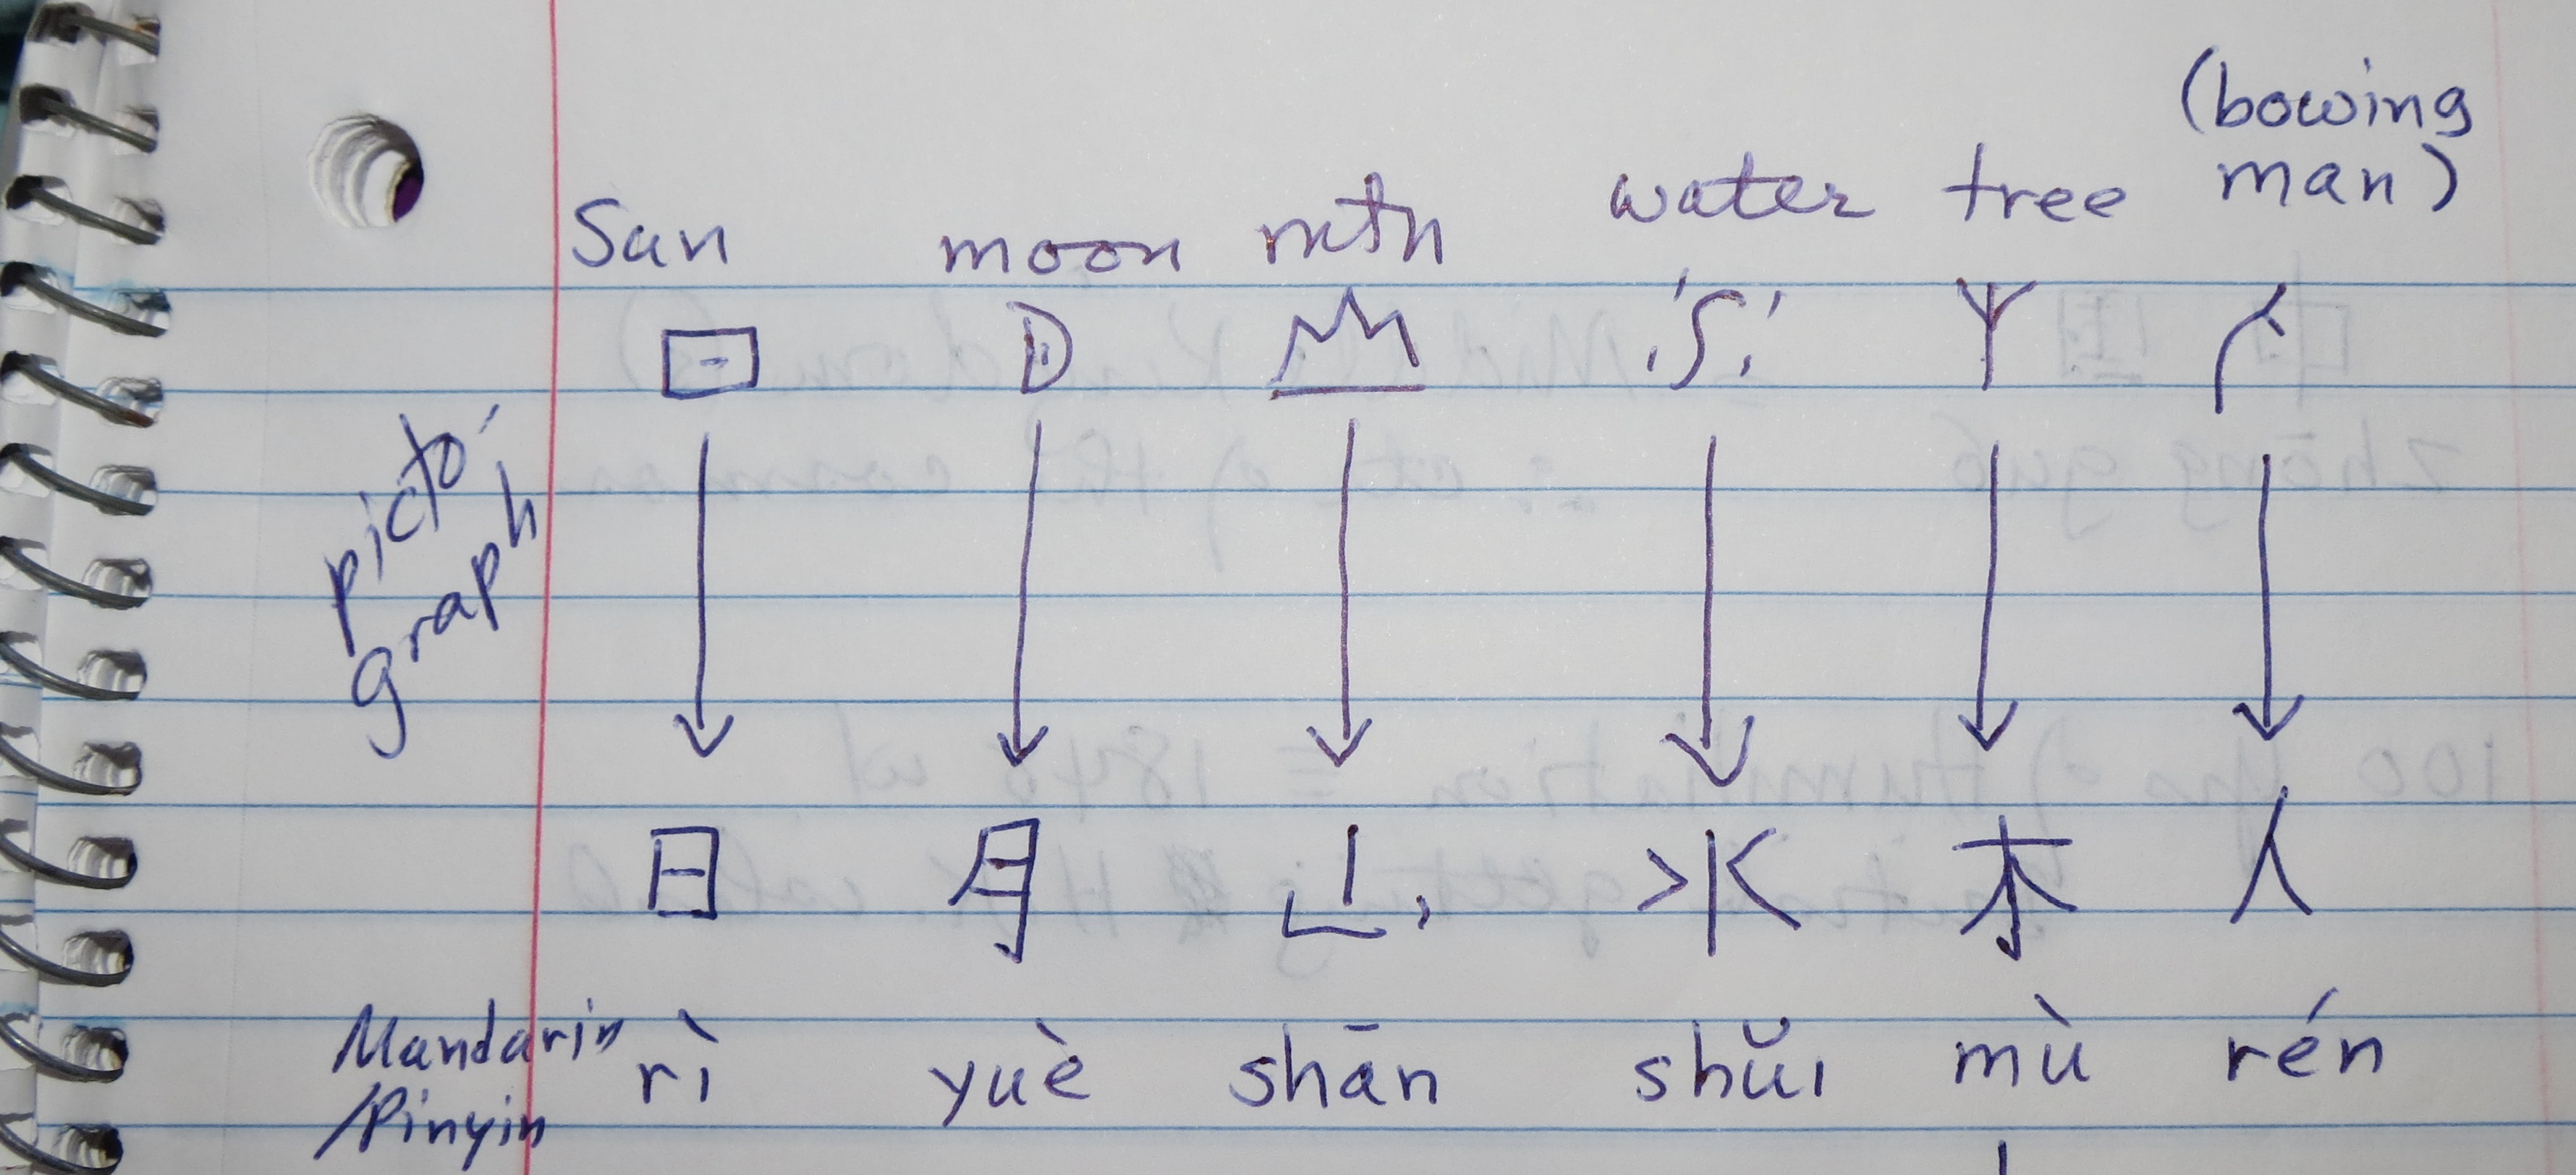 (bowing
man)
Sun moon mtn water tree
picto-
graph
日 月 山 水 木 人
Mandarin
/Pinyin
rì yuè shān shŭi mù rén